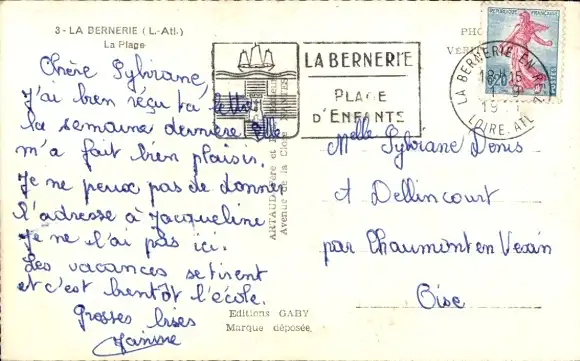 3 - LA BERNERIE (L.-Atl.)
La Plage
Chère Sylviane,
J'ai bien réçu ta lettre
la semaine dernière. Elle
m'a fait bien plaisir.
Je ne peux pas de donner
l'adresse à Jacqueline
Je ne l'ai pas ici.
Les vacances se tirent
et c'est bientôt l'école.
Grosses bises
Janine
LA BERNERIE
PLAGE
D'ENFANTS
ARTAUD Père et
Avenue de la Close
Editions GABY
Marque déposée
REPUBLIQUE FRANÇAISE
POSTES
LA BERNERIE-EN-R
18H15
1-9
19
LOIRE-ATL.
Melle Sylviane Denis
à Dellincourt
par Chaumont en Vexin
Oise